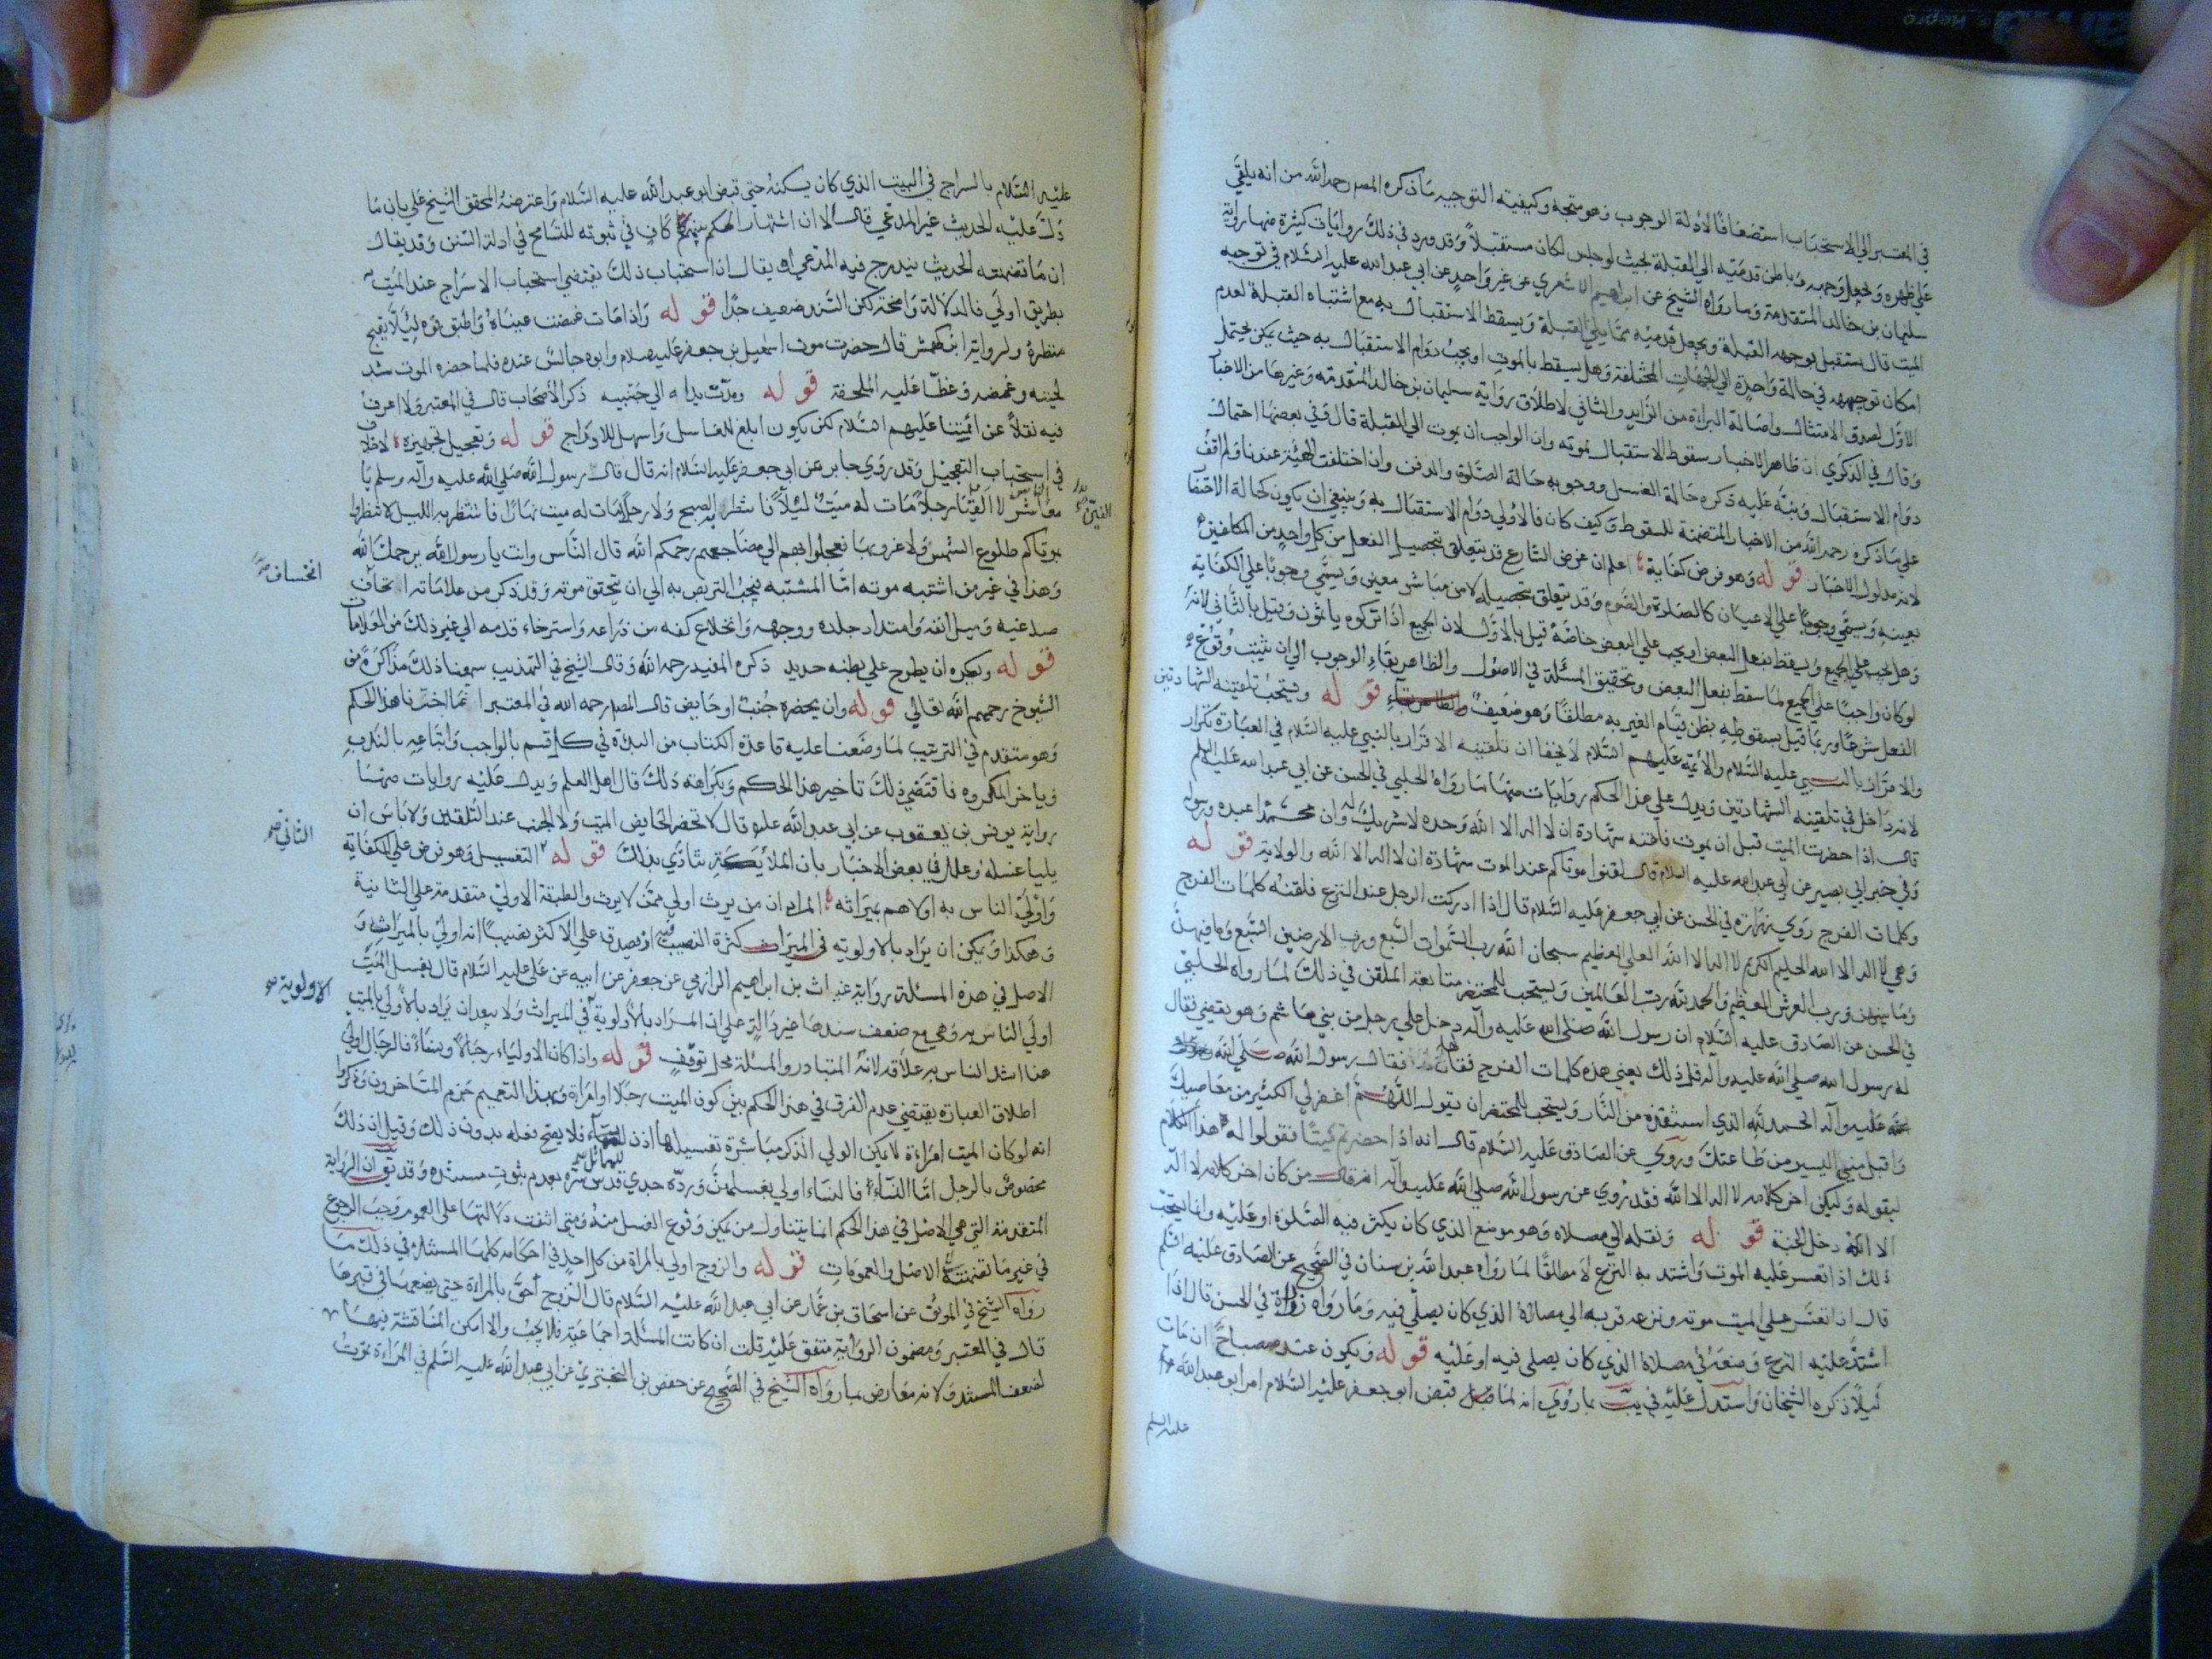 في المعتبر الي الاستحباب استضعافا لادلة الوجوب وهو متجه وكيفيته التوجيه ما ذكره المصم رحمه الله من انه يلقي
علي ظهره ويجعل وجهه وباطن قدميه الي القبلة بحيث لو جلس لكان مستقبلاً وقد ورد في ذلك روايات كثيرة منها رواية
سليمان بن خالد المتقدمة وما رواه الشيخ عن ابراهيم الاشعري عن غير واحد عن ابي عبد الله عليه السلام في توجيه
الميت قال يستقبل بوجهه القبلة ويجعل قدميه مما يلي القبلة ويسقط الاستقبال به مع اشتباه القبلة لعدم
امكان توجيهه في حالة واحدة الي الجهات المختلفة وهل يسقط بالموت او يجب دوام الاستقبال به حيث يمكن يحتمل
الاول لصدق الامتثال واصالة البراءة من الزايد والثاني لاطلاق رواية سليمان بن خالد المتقدمة وغيرها من الاخبار
وقال في الذكري ان ظاهر الاخبار سقوط الاستقبال بموته وان الواجب ان يموت الي القبلة قال وفي بعضها احتمال
دوام الاستقبال ونبه عليه ذكره حالة الغسل ووجوبه حالة الصلوة والدفن وان اختلفت الهيئة عندنا ولم اقف
علي ما ذكره رحمه الله من الاخبار المتضمنة للسقوط وكيف كان فالاولي دوام الاستقبال به وينبغي ان يكون كحالة الاحتضا
لانه مدلول الاخبار قوله وهو فرض كفاية اعلم ان غرض الشارع قد يتعلق بتحصيل الفعل من كل واحد من المكلفين
بعينه ويسمي وجوبا علي الاعيان كالصلوة والصوم وقد يتعلق بتحصيله لا من مباشر معين ويسمي وجوبا علي الكفاية
وهل يجب علي الجميع ويسقط بفعل البعض او يجب علي البعض خاصة قيل بالاول لان الجميع اذا تركوه ياثمون وقيل بالثاني لانه
لو كان واجبا علي الجميع لما سقط بفعل البعض وتحقيق المسئلة في الاصول والظاهر بقاء الوجوب الي ان يثبت وقوع
الفعل شرعا وربما قيل بسقوطه بظن قيام الغير به مطلقا وهو ضعيف قوله ويستحب تلقينه الشهادتين
والاقرار بالنبي عليه السلام والائمة عليهم السلام لا يخفا ان تلقينه الاقرار بالنبي عليه السلام في العبارة تكرار
لانه داخل في تلقينه الشهادتين ويدل علي هذا الحكم روايات منها ما رواه الحلبي في الحسن عن ابي عبد الله عليه السلم
قال اذا حضرت الميت قبل ان يموت فلقنه شهادة ان لا اله الا الله وحده لا شريك له وان محمدا عبده ورسوله
وفي خبر ابي بصير عن ابي عبد الله عليه السلام قال لقنوا موتاكم عند الموت شهادة ان لا اله الا الله والولاية قوله
وكلمات الفرج روي زرارة في الحسن عن ابي جعفر عليه السلام قال اذا ادركت الرجل عند النزع فلقنه كلمات الفرج
وهي لا اله الا الله الحليم الكريم لا اله الا الله العلي العظيم سبحان الله رب السموات السبع ورب الارضين السبع وما فيهن
وما بينهن ورب العرش العظيم والحمد لله رب العالمين ويستحب للمحتضر متابعة الملقن في ذلك لما رواه الحلبي
في الحسن عن الصادق عليه السلام ان رسول الله صلي الله عليه وآله دخل علي رجل من بني هاشم وهو يقضي فقال
له رسول الله صلي الله عليه وآله قل ذلك يعني هذه كلمات الفرج فقالها فقال رسول الله صلي الله
عليه وآله الحمد لله الذي استنقذه من النار ويستحب للمحتضر ان يقول اللهم اغفر لي الكثير من معاصيك
واقبل مني اليسير من طاعتك وروي عن الصادق عليه السلام قال انه اذا حضرتم ميتا فقولوا له هذا الكلام
ليقوله وليكن اخر كلامه لا اله الا الله فقد روي عن رسول الله صلي الله عليه وآله انه قال من كان اخر كلامه لا اله
الا الله دخل الجنة قوله ونقله الي مصلاه وهو موضع الذي كان يكثر فيه الصلوة او عليه وانما يستحب
ذلك اذا تعسر عليه الموت واشتد به النزع لا مطلقا لما رواه عبد الله بن سنان في الصحيح عن الصادق عليه السلم
قال اذا تعسر علي الميت موته ونزعه قربه الي مصلاه الذي كان يصلي فيه وما رواه زرارة في الحسن قال اذا
اشتد عليه النزع وضعه في مصلاه الذي كان يصلي فيه او عليه قوله ويكون عنده مصباح ان مات
ليلاً ذكره الشيخان واستدل عليه في يب بما روي انه لما قبض ابو جعفر عليه السلام امر ابو عبد الله
عليه السلم
عليه السلام بالسراج في البيت الذي كان يسكنه حتي قبض ابو عبد الله عليه السلام واعترضه المحقق الشيخ علي بان ما
دل عليه الحديث غير المدعي قال الا ان اشتهار الحكم بينهم كاف في ثبوته للتسامح في ادلة السنن وقد يقال
ان ما تضمنه الحديث يندرج فيه المدعي او يقال ان استحباب ذلك يقتضي استحباب الاسراج عند الميت
بطريق اولي فالدلالة واضحة لكن السند ضعيف جدا قوله واذا مات غمضت عيناه واطبق فوه لئلا يقبح
منظره ولرواية ابن كهمش قال حضرت موت اسمعيل بن جعفر عليه السلام وابوه جالس عنده فلما حضره الموت شد
لحيته وغمضه وغطا عليه الملحفة قوله ومدت يداه الي جنبيه ذكر الاصحاب قال في المعتبر ولا اعرف
فيه نقلاً عن ائمتنا عليهم السلام لكن يكون اطوع للغاسل واسهل للادراج قوله وتعجيل تجهيزه لا خلاف
في استحباب التعجيل وقد روي جابر عن ابي جعفر عليه السلام انه قال قال رسول الله صلي الله عليه وآله وسلم يا
معاشر الناس لا القين رجلا مات له ميت ليلاً فانتظر به الصبح ولا رجلا مات له ميت نهارا فانتظر به الليل لا تنتظروا
بموتاكم طلوع الشمس ولا غروبها فعجلوا بهم الي مضاجعهم رحمكم الله قال الناس وانت يا رسول الله يرحمك الله
وهذا في غير من اشتبه موته اما المشتبه فيجب التربص به الي ان يتحقق موته وقد ذكر من علاماته
انخساف
صدغيه وميل انفه وامتداد جلده ووجهه وانخلاع كفه من ذراعه واسترخاء قدمه الي غير ذلك من العلامات
قوله ويكره ان يطرح علي بطنه حديد ذكره المفيد رحمه الله وقال الشيخ في التهذيب سمعنا ذلك مذاكرة من
الشيوخ رحمهم الله تعالي قوله وان يحضره جنب او حايض قال المصم رحمه الله في المعتبر انما اخرنا هذا الحكم
وهو متقدم في الترتيب لما وضعنا عليه قاعدة الكتاب من البدءة في كل قسم بالواجب واتباعه بالندب
وياخر المكروه فاقتضي ذلك تاخير هذا الحكم وبكراهة ذلك قال اهل العلم ويدل عليه روايات منها
رواية يونس بن يعقوب عن ابي عبد الله عليه قال لا تحضر الحايض الميت ولا الجنب عند التلقين ولا باس ان
يليا غسله وعلل في بعض الاخبار بان الملائكة تتاذي بذلك قوله الثاني التغسيل وهو فرض علي الكفاية
واولي الناس به اولاهم بميراثه المراد ان من يرث اولي ممن لا يرث والطبقة الاولي متقدمة علي الثانية
وهكذا ويمكن ان يراد بالاولوية في الميراث كثرة النصيب فيصدق علي الاكثر نصيبا انه اولي بالميراث و
الاصل في هذه المسئلة رواية غياث بن ابراهيم الرازمي عن جعفر عن ابيه عن علي عليه السلام قال يغسل الميت
اولي الناس به وهي مع ضعف سندها غير دالة علي ان المراد بالاولوية الاولوية في الميراث ولا يبعد ان يراد بالاولي بالميت
هنا اشد الناس به علاقة لانه المتبادر والمسئلة محل توقف قوله واذا كان الاولياء رجالاً ونساءً فالرجال اولي
اطلاق العبارة يقتضي عدم الفرق في هذا الحكم بين كون الميت رجلا او امراة وبهذا التعميم جزم المتاخرون وذكروا
انه لو كان الميت امراءة لا يمكن الولي الذكر مباشرة تغسيلها اذن للمماثل فلا يصح فعله بدون ذلك وقيل ان ذلك
مخصوص بالرجل اما النساء فالنساء اولي بغسلهن ورده جدي قدس سره بعدم ثبوت مستنده وقد يقال ان الرواية
المتقدمة التي هي الاصل في هذا الحكم انما يتناول من يمكن وقوع الغسل منه ومتي انتفت دلالتها علي العموم وجب الرجوع
في غير ما تضمنته الي الاصل والعمومات قوله والزوج اولي بالمراة من كل احد في احكامه كلها المستند في ذلك ما
رواه الشيخ في الموثق عن اسحاق بن عمار عن ابي عبد الله عليه السلام قال الزوج احق بالمراة حتي يضعها في قبرها
قال في المعتبر ومضمون الرواية متفق عليه قلت ان كانت المسئلة اجماعية فلا بحث والا امكن المناقشة فيها
لضعف المستند ولانه معارض بما رواه الشيخ في الصحيح عن حفص بن البختري عن ابي عبد الله عليه السلم في المراءة تموت